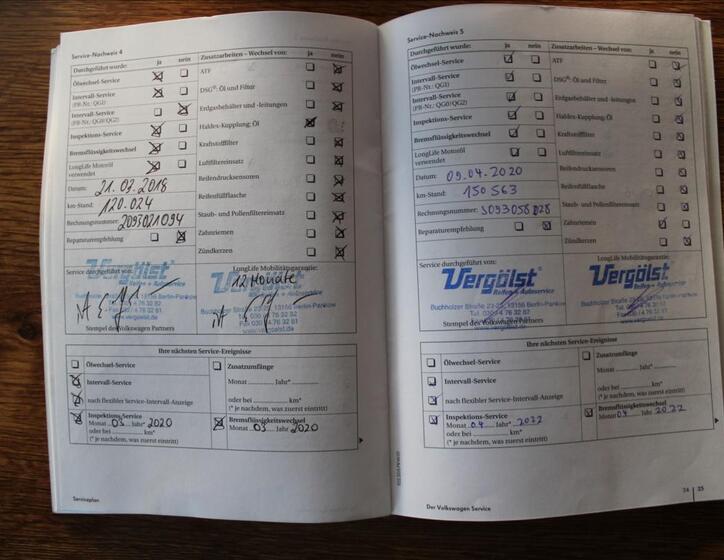 Service-Nachweis 4
Durchgeführt wurde: ja nein
Ölwechsel-Service
Intervall-Service
(PR-Nr.: QGI)
Intervall-Service
(PR-Nr.: QG0/QG2)
Inspektions-Service
Bremsflüssigkeitswechsel
LongLife Motoröl
verwendet
Datum: 21.03.2018
km-Stand: 120.024
Rechnungsnummer: 2093021094
Reparaturempfehlung
Zusatzarbeiten – Wechsel von: ja nein
ATF
DSG®: Öl und Filter
Erdgasbehälter und -leitungen
Haldex-Kupplung: Öl
Kraftstofffilter
Luftfiltereinsatz
Reifendrucksensoren
Reifenfüllflasche
Staub- und Pollenfiltereinsatz
Zahnriemen
Zündkerzen
Service durchgeführt von:
Vergölst
Reifen + Autoservice
13156 Berlin-Pankow
www.vergölst.de
Stempel des Volkswagen Partners
LongLife Mobilitätsgarantie:
12 Monate
www.vergölst.de
Ihre nächsten Service-Ereignisse
Ölwechsel-Service
Intervall-Service
nach flexibler Service-Intervall-Anzeige
Inspektions-Service
Monat 03 Jahr* 2020
oder bei km*
(* je nachdem, was zuerst eintritt)
Zusatzumfänge
Monat Jahr*
oder bei km*
(* je nachdem, was zuerst eintritt)
Bremsflüssigkeitswechsel
Monat 03 Jahr 2020
Serviceplan
Service-Nachweis 5
Durchgeführt wurde: ja nein
Ölwechsel-Service
Intervall-Service
(PR-Nr.: QGI)
Intervall-Service
(PR-Nr.: QG0/QG2)
Inspektions-Service
Bremsflüssigkeitswechsel
LongLife Motoröl
verwendet
Datum: 09.04.2020
km-Stand: 150 563
Rechnungsnummer: 3093058028
Reparaturempfehlung
Zusatzarbeiten – Wechsel von: ja nein
ATF
DSG®: Öl und Filter
Erdgasbehälter und -leitungen
Haldex-Kupplung: Öl
Kraftstofffilter
Luftfiltereinsatz
Reifendrucksensoren
Reifenfüllflasche
Staub- und Pollenfiltereinsatz
Zahnriemen
Zündkerzen
Service durchgeführt von:
Vergölst
Reifen + Autoservice
Buchholzer Straße 23-25, 13156 Berlin-Pankow
www.vergölst.de
Stempel des Volkswagen Partners
LongLife Mobilitätsgarantie:
Vergölst
Reifen + Autoservice
www.vergölst.de
Ihre nächsten Service-Ereignisse
Ölwechsel-Service
Intervall-Service
nach flexibler Service-Intervall-Anzeige
Inspektions-Service
Monat 04 Jahr* 2022
oder bei km*
(* je nachdem, was zuerst eintritt)
Zusatzumfänge
Monat Jahr*
oder bei km*
(* je nachdem, was zuerst eintritt)
Bremsflüssigkeitswechsel
Monat 04 Jahr 2022
Der Volkswagen Service
24 | 25